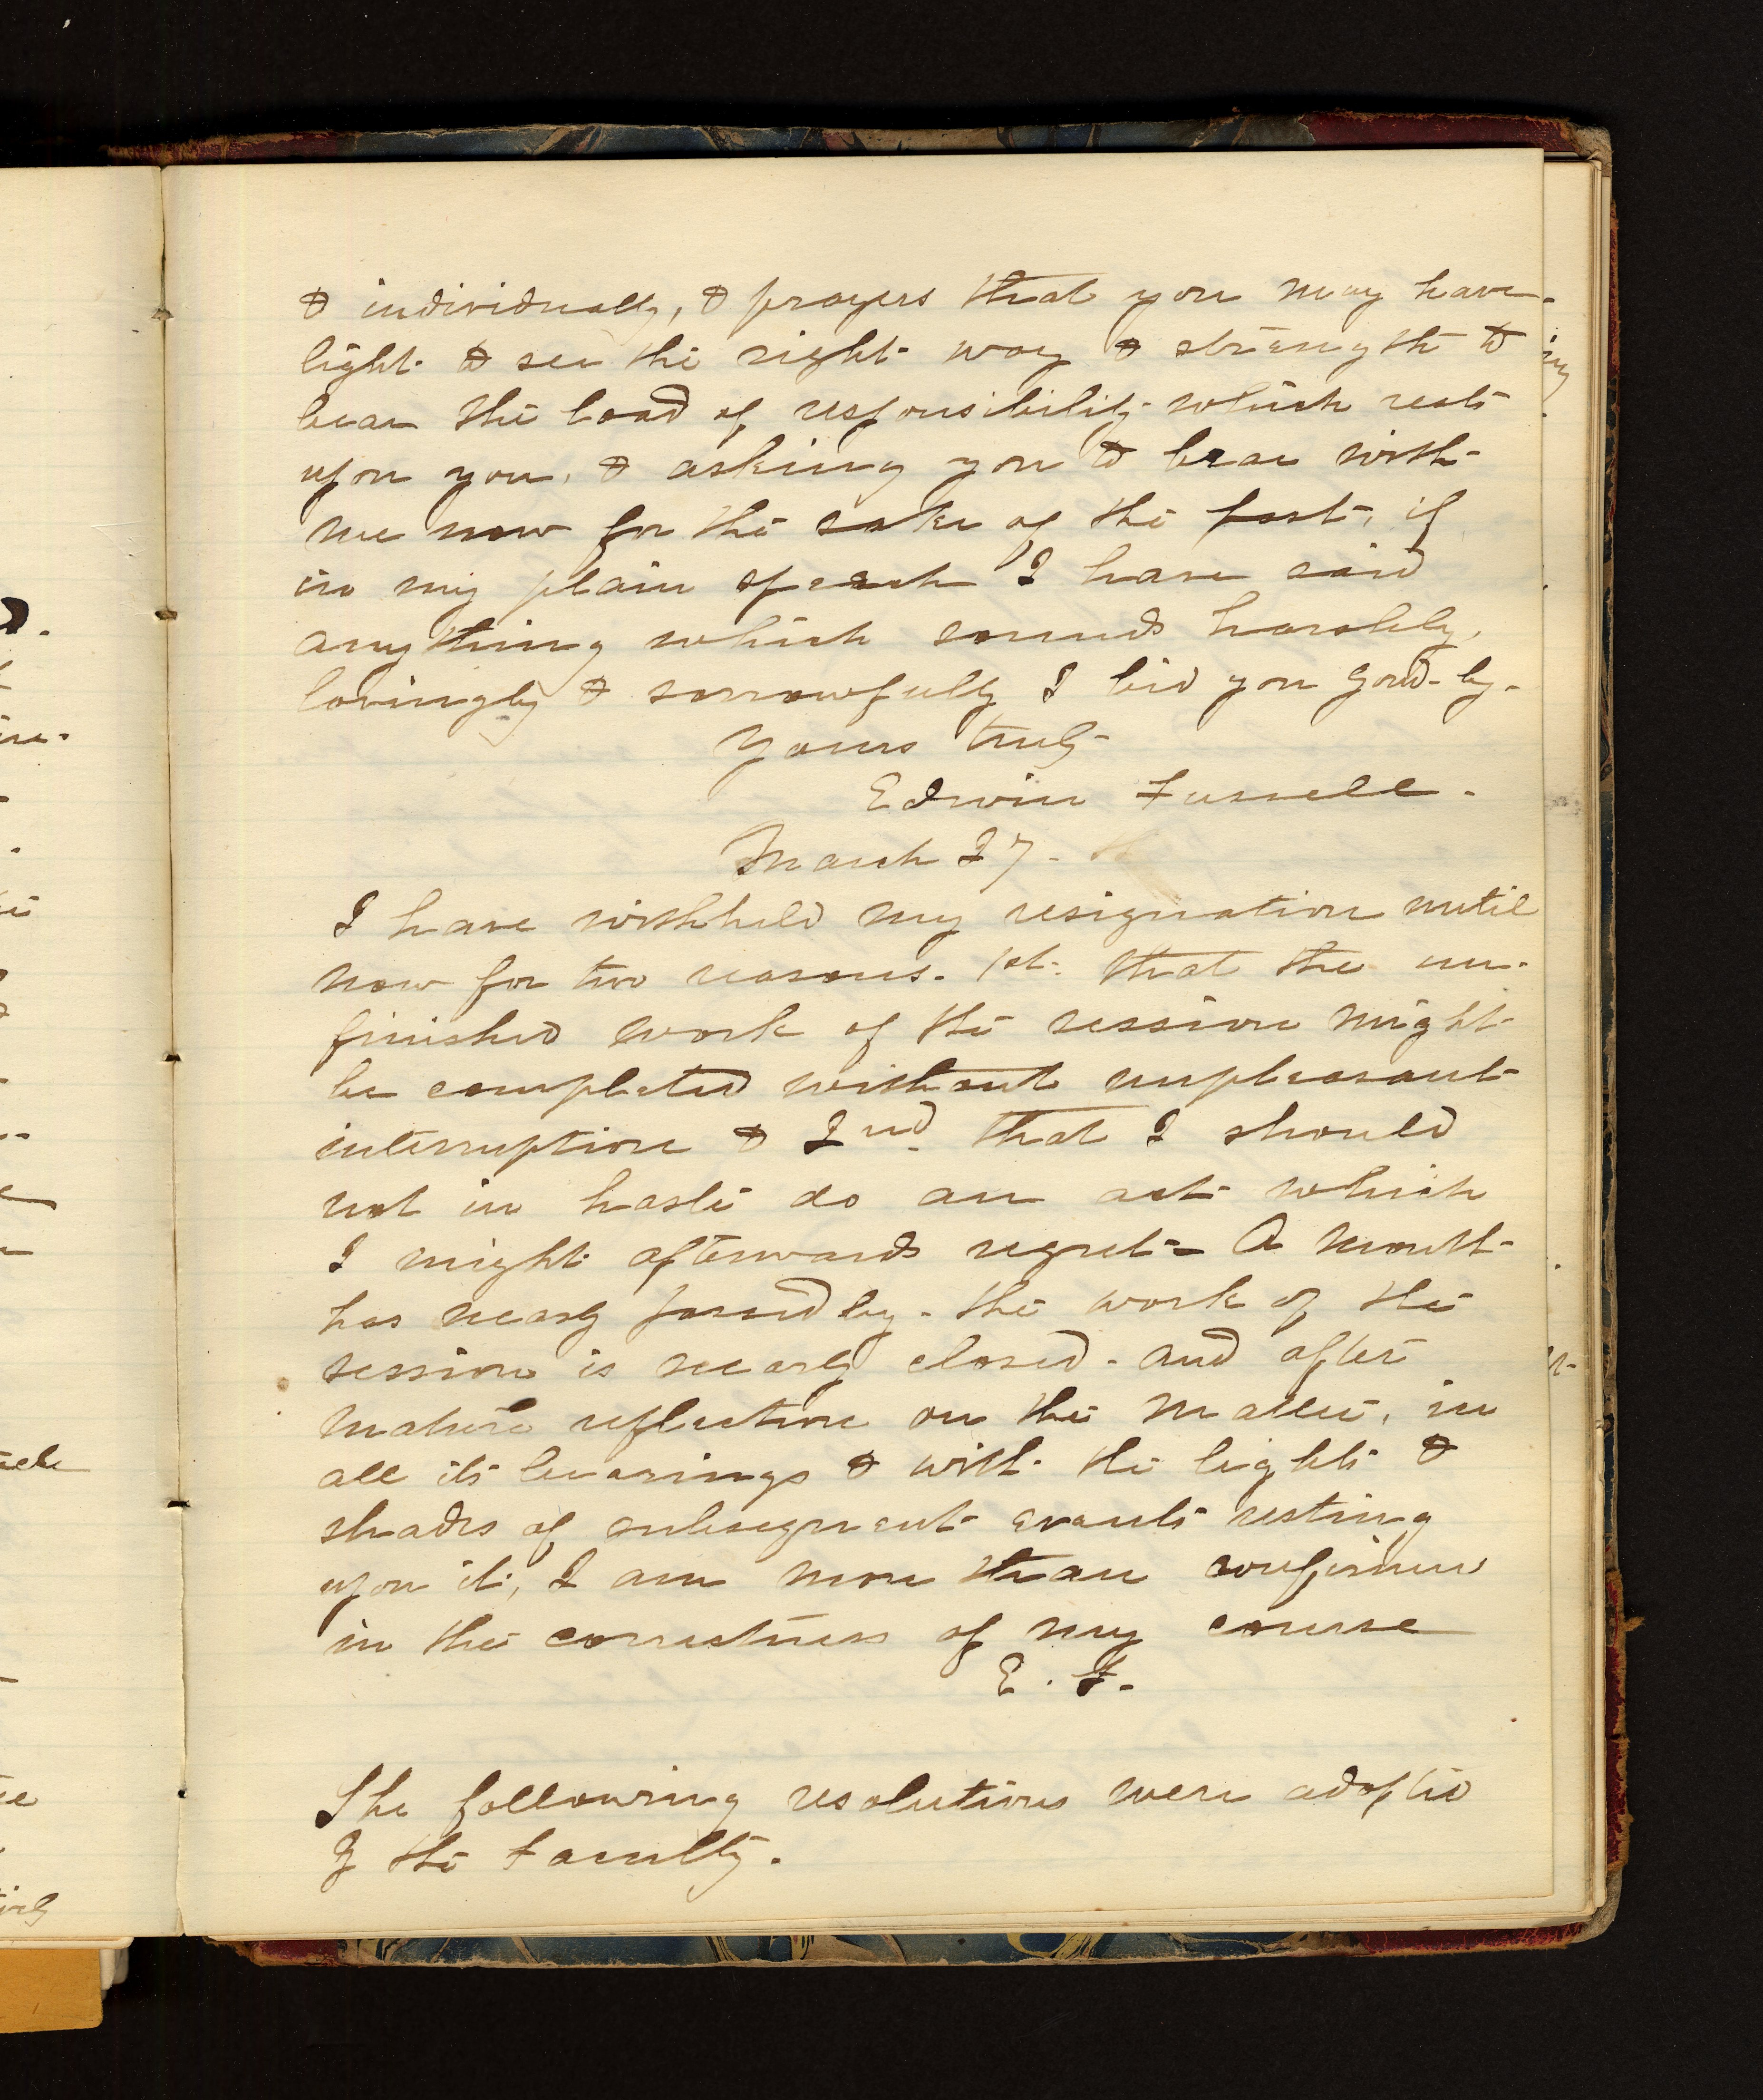 & individually, & prayers that you may have
light to see the right way & strength to
bear the load of responsibility which rests
upon you, & asking you to bear with
me now for the sake of the past, if
in my plain speech I have said
anything which sounds harshly,
lovingly & sorrowfully I bid you good-by.
Yours truly
Edwin Fussell.
March 27.
I have withheld my resignation until
now for two reasons. 1st. that the un-
finished work of the session might
be completed without unpleasant
interruption & 2nd. that I should
not in haste do an act which
I might afterwards regret - A month
has nearly passed by. the work of the
session is nearly closed. and after
mature reflection on the matter, in
all its bearings & with the lights &
shades of subsequent events resting
upon it, I am more than confirmed
in the correctness of my course
E. F.
The following resolutions were adopted
by the Faculty.